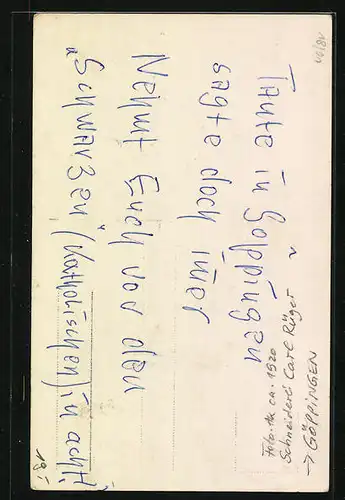 Tante in Göppingen
sagte doch im̄er
Nehmt Euch vor den
"Schwarzen" (Katholischen) in acht!
Foto-Ak ca. 1920
Schneiderei Carl Rüger
→ GÖPPINGEN
18,-